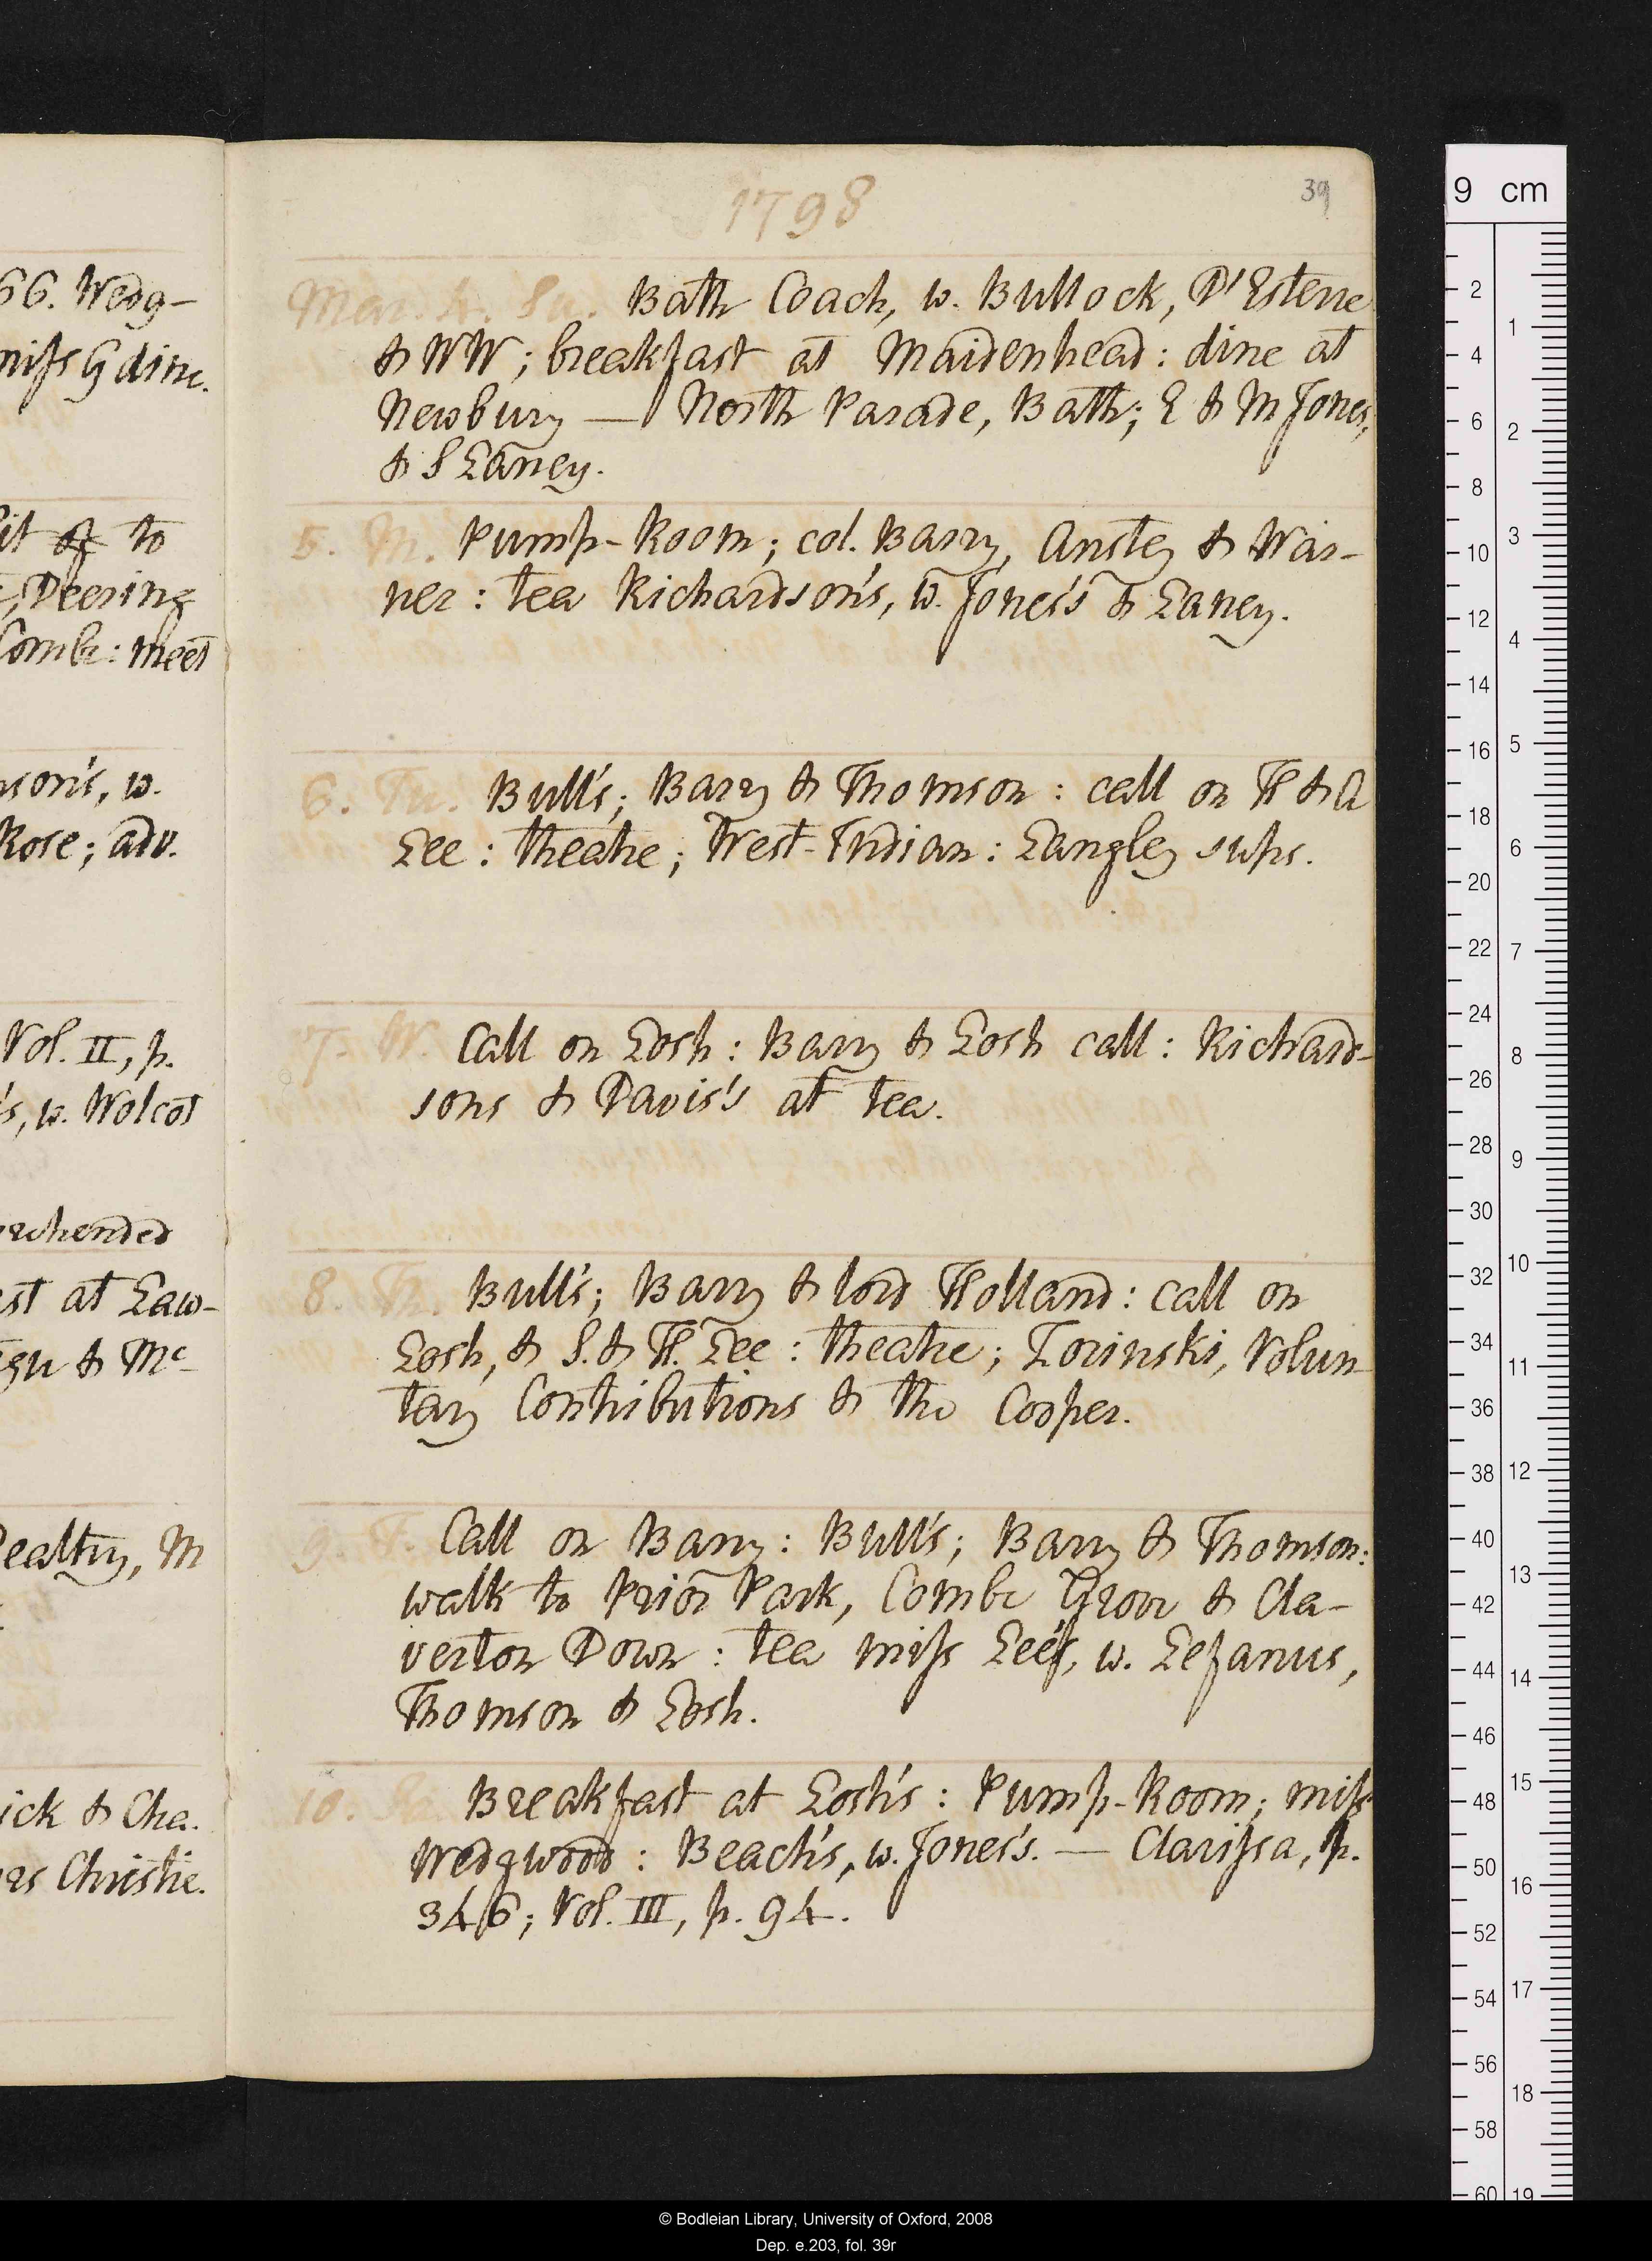 66. Wedg-
miss G dine.
of to
Deering
Combe: meet
son's, w.
Rose; adv.
Vol. II, p.
's, w. Wolcot
rehended
st at Law-
gu & Mc
ealtry, M
ick & Cha.
as Christie.
1798
39
Mar. 4. Su. Bath Coach, w. Bullock, D'Esterre
& WW; breakfast at Maidenhead: dine at
Newbury — North Parade, Bath; E & M Jones,
& S Laney.
5. M. Pump-Room; col. Barry, Anstey & War-
ner: tea Richardson's, w. Jones's & Laney.
6. Tu. Bull's; Barry & Thomson: call on H & A
Lee: theatre; West-Indian: Langley sups.
7. W. Call on Losh: Barry & Losh call: Richard-
sons & Davis's at tea.
8. Th. Bull's; Barry & lord Holland: call on
Losh, & S. & H. Lee: theatre; Zorinski, Volun
tary Contributions & the Cooper.
9. F. Call on Barry: Bull's; Barry & Thomson:
walk to Prior Park, Combe Grove & Cla-
verton Down: tea miss Lee's, w. Lefanus,
Thomson & Losh.
10. Sa. Breakfast at Losh's: Pump-Room; miss
Wedgwood: Beach's, w. Jones's. — Clarissa, p.
346; Vol. III, p. 94.
9 cm
2
4
6
8
10
12
14
16
18
20
22
24
26
28
30
32
34
36
38
40
42
44
46
48
50
52
54
56
58
60
1
2
3
4
5
6
7
8
9
10
11
12
13
14
15
16
17
18
19
© Bodleian Library, University of Oxford, 2008
Dep. e.203, fol. 39r